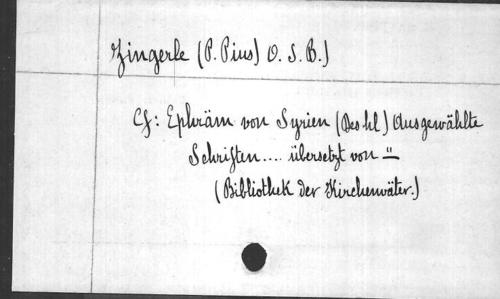 Zingerle (P. Pius) O. S. B.)
Cf: Ephräm von Syrien (Des hl) Ausgewählte
Schriften.... übersetzt von "
(Bibliothek der Kirchenväter.)